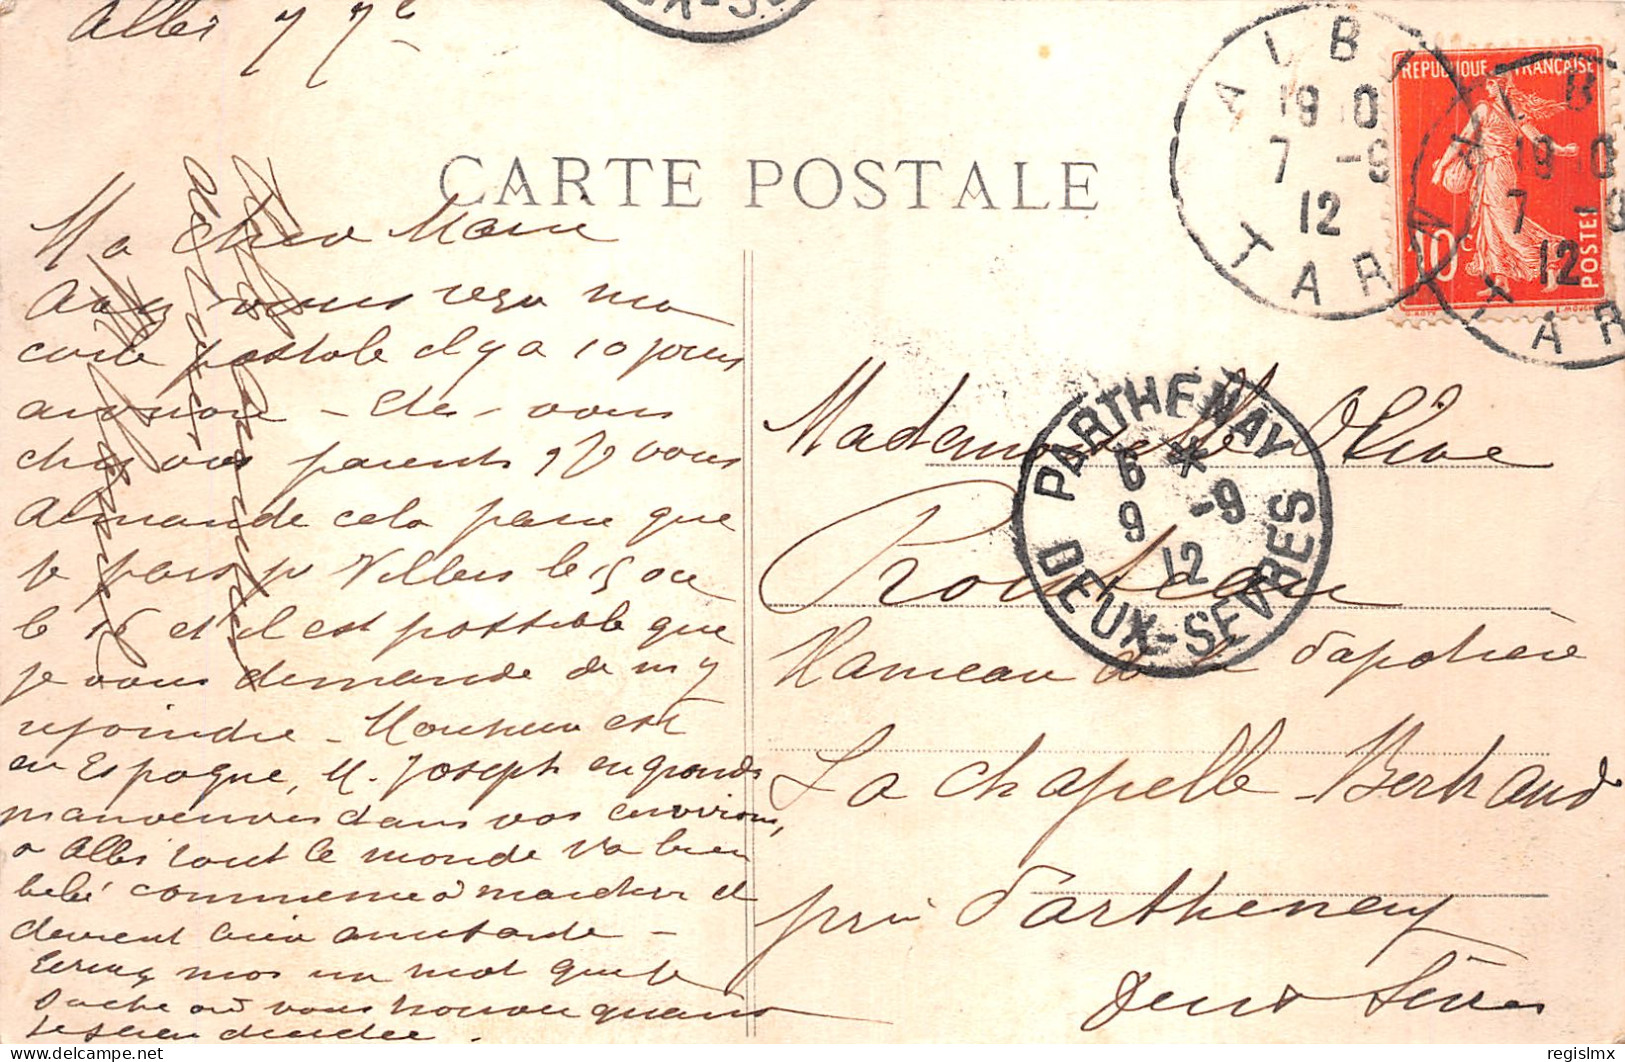 Albi 7 7e
CARTE POSTALE
ALBI
19 10
7 -9
12
TARN
ALBI
19 10
7 -9
12
TAR
REPUBLIQUE FRANÇAISE
10c
POSTES
PARTHENAY
6 *
9 -9
12
DEUX-SEVRES
Ma chère Marie
Avez vous reçu ma
carte postale il y a 10 jours
environ - Etes-vous
chez vos parents je vous
demande cela parce que
je pars pr Villers le 15 ou
le 16 et il est possible que
je vous demande de m'y
rejoindre - Monsieur est
en Espagne, M. Joseph en grandes
manoeuvres dans vos environs,
à Albi tout le monde va bien
bébé commence à marcher et
devient bien amusante -
Ecrivez moi un mot que je
sache où vous trouver quand
je serai décidée.
Mademoiselle Olive
Rousseau
Hameau de la
La Chapelle-Bertrand
près Parthenay
Deux Sèvres
regislmx
delcampe.net